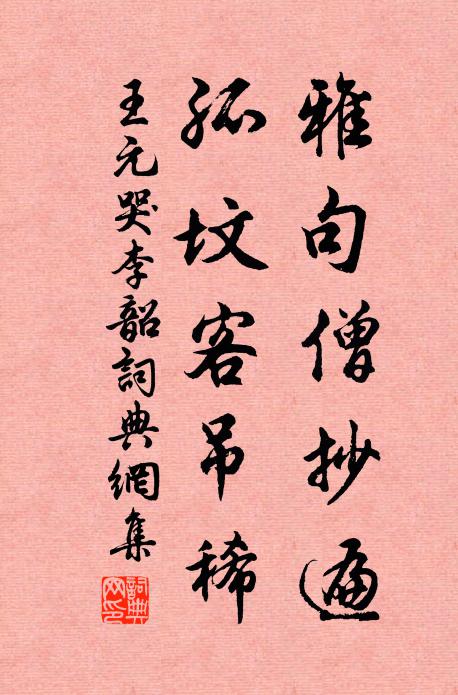 雅句僧抄遍
孤坟客吊稀
王元哭李韶詞典網集
詞典网印